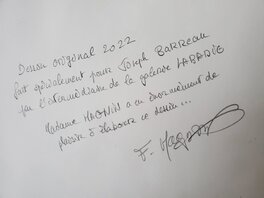 Dessin original 2022
fait spécialement pour Joseph BARREAU
par l'intermédiaire de la galerie LABADIE
Madame MAGNIN a eu énormément de
plaisir à élaborer ce dessin...
F. Magnin